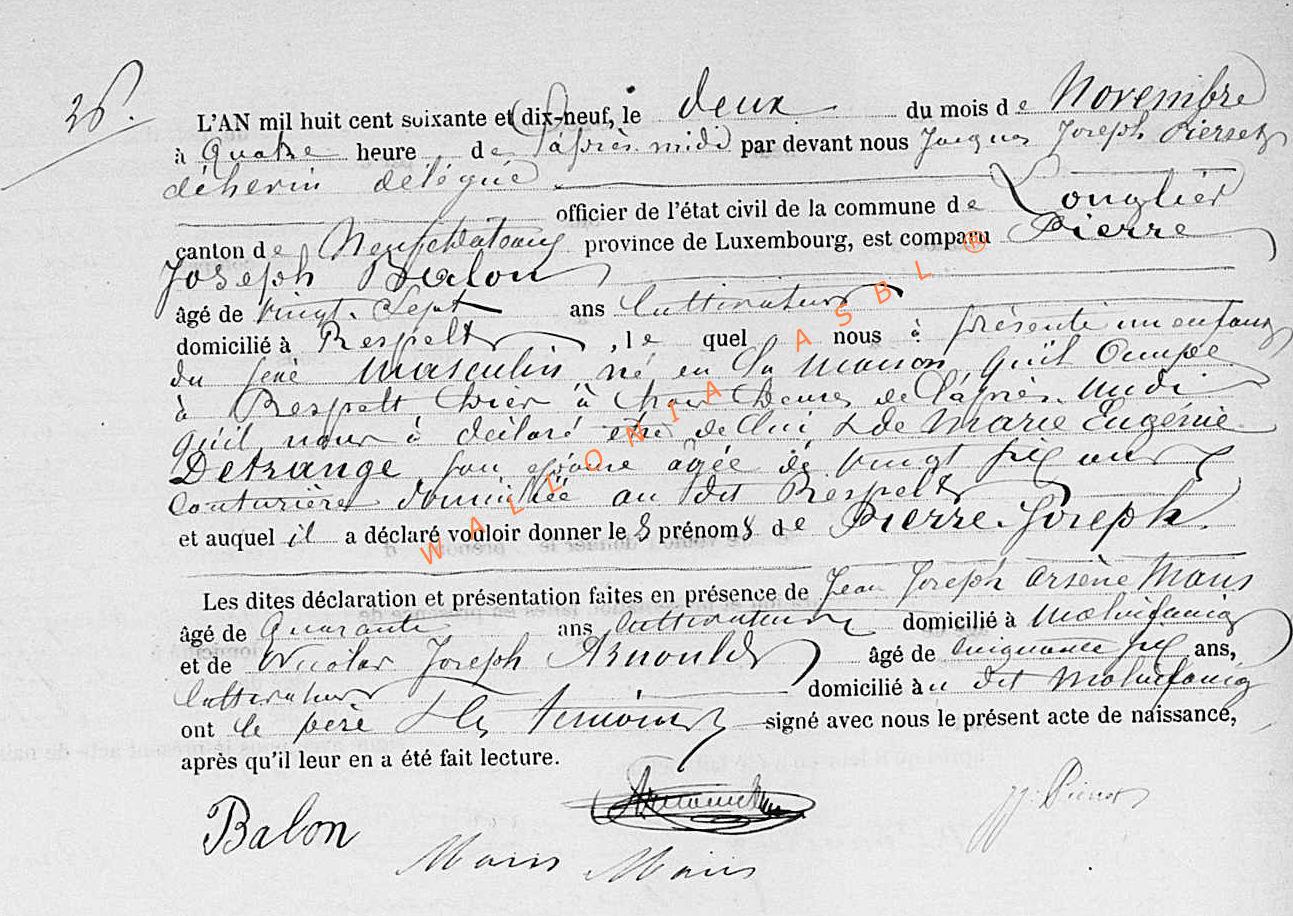 36.
L'AN mil huit cent soixante et dix-neuf, le deux du mois de Novembre
à Quatre heure de l'après midi par devant nous Jacques Joseph Pierset
échevin délégué
officier de l'état civil de la commune de Longlier
canton de Neufchateau province de Luxembourg, est comparu Pierre
Joseph Balon
âgé de vingt-Sept ans Cultivateur
domicilié à Respelt, le quel nous à présenté un enfant
du sexe masculin né en sa maison qu'il Occupe
à Respelt, hier à heures de l'après-midi
qu'il nous à déclaré être de lui & de Marie Eugénie
Detrange son épouse agée de vingt six ans
Couturière domiciliée au dit Respelt
et auquel il a déclaré vouloir donner les prénoms de Pierre-Joseph.
Les dites déclaration et présentation faites en présence de Jean Joseph Arsène Maus
âgé de Quarante ans, Cultivateur domicilié à Molinfaing
et de Nicolas Joseph Arnould âgé de Cinquante six ans,
Cultivateur domicilié au dit Molinfaing
ont le père & les témoins signé avec nous le présent acte de naissance,
après qu'il leur en a été fait lecture.
Balon
WALLONIA ASBL ®